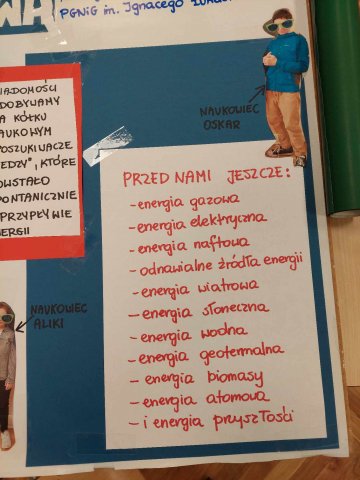 PGNiG im. Ignacego
IADOMOŚCI
DOBYWAMY
A KÓŁKU
AUKOWYM
POSZUKIWACZE
EDZY", KTÓRE
OWSTAŁO
PONTANICZNIE
PRZYPŁYWIE
NERGII
NAUKOWIEC
OSKAR
NAUKOWIEC
ALIKI
PRZED NAMI JESZCZE:
- energia gazowa
- energia elektryczna
- energia naftowa
- odnawialne źródła energii
- energia wiatrowa
- energia słoneczna
- energia wodna
- energia geotermalna
- energia biomasy
- energia atomowa
- i energia przyszłości